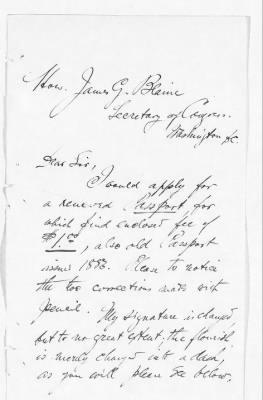 Hon. James G. Blaine
Secretary of Congress.
Washington DC.
Dear Sir,
I would apply for
a renewed Passport, for
which find enclosed fee of
$1.00, also old Passport
issue 1883. Please to notice
the two corrections made with
pencil. My signature is changed
but to no great extent; the flourish
is merely changed into a dash,
as you will please see below.